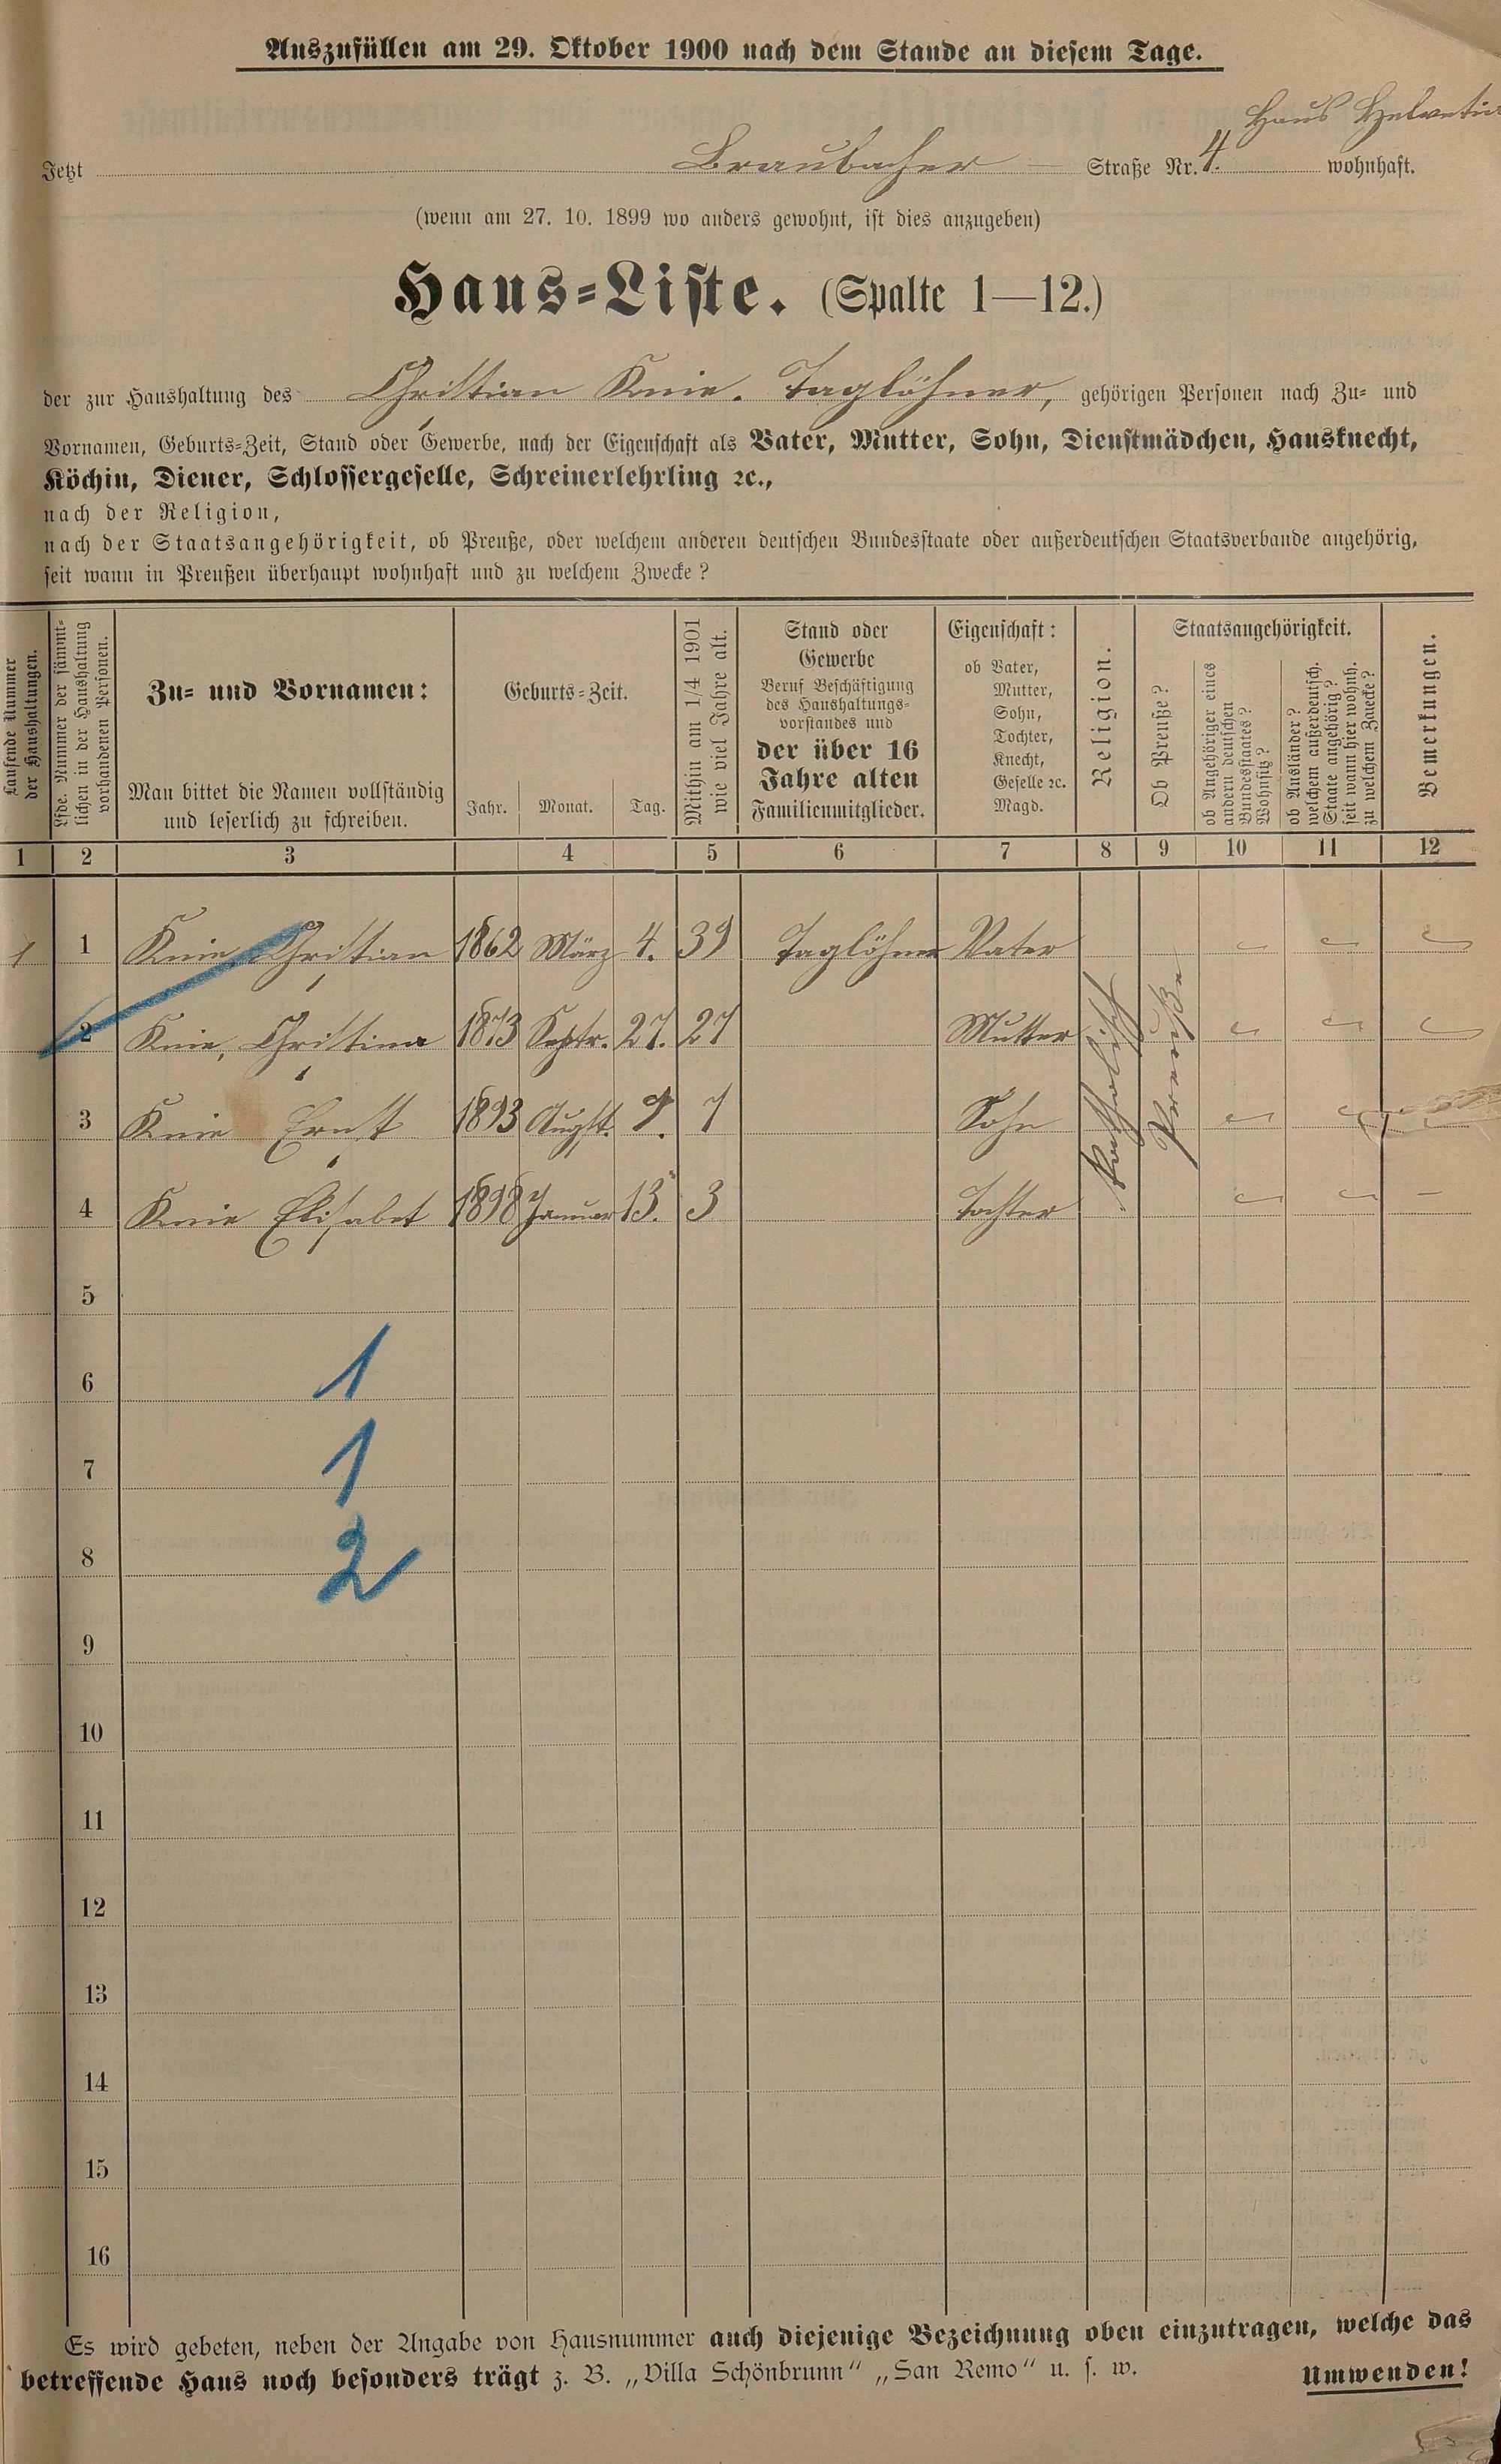 Auszufüllen am 29. Oktober 1900 nach dem Stande an diesem Tage.
Haus Helvetia
Jetzt Braubacher — Straße Nr. 4. wohnhaft.
(wenn am 27. 10. 1899 wo anders gewohnt, ist dies anzugeben)
Haus-Liste. (Spalte 1—12.)
der zur Haushaltung des Christian Knie. Taglöhner, gehörigen Personen nach Zu- und
Vornamen, Geburts-Zeit, Stand oder Gewerbe, nach der Eigenschaft als Vater, Mutter, Sohn, Dienstmädchen, Hausknecht,
Köchin, Diener, Schlossergeselle, Schreinerlehrling ꝛc.,
nach der Religion,
nach der Staatsangehörigkeit, ob Preuße, oder welchem anderen deutschen Bundesstaate oder außerdeutschen Staatsverbande angehörig,
seit wann in Preußen überhaupt wohnhaft und zu welchem Zwecke?
Laufende Nummer
der Haushaltungen.
Lfde. Nummer der sämmt-
lichen in der Haushaltung
vorhandenen Personen.
Zu- und Vornamen:
Man bittet die Namen vollständig
und leserlich zu schreiben.
Geburts-Zeit.
Jahr. Monat. Tag.
Mithin am 1/4 1901
wie viel Jahre alt.
Stand oder
Gewerbe
Beruf Beschäftigung
des Haushaltungs-
vorstandes und
der über 16
Jahre alten
Familienmitglieder.
Eigenschaft:
ob Vater,
Mutter,
Sohn,
Tochter,
Knecht,
Geselle ꝛc.
Magd.
Religion.
Staatsangehörigkeit.
Ob Preuße?
ob Angehöriger eines
andern deutschen
Bundesstaates?
Wohnsitz?
ob Ausländer?
welchem außerdeutsch.
Staate angehörig?
seit wann hier wohnh.
zu welchem Zwecke?
Bemerkungen.
1 2 3 4 5 6 7 8 9 10 11 12
1 1 Knie, Christian 1862 März 4. 39 Taglöhner Vater
2 Knie, Christina 1873 Septr. 27. 27 Mutter
katholisch
Preuße
3 Knie Ernst 1893 Augst. 9. 7 Sohn
4 Knie Elisabet 1898 Januar 13. 3 Tochter –
5
6 1
7 1
8 2
9
10
11
12
13
14
15
16
Es wird gebeten, neben der Angabe von Hausnummer auch diejenige Bezeichnung oben einzutragen, welche das
betreffende Haus noch besonders trägt z. B. „Villa Schönbrunn“ „San Remo“ u. s. w. Umwenden!